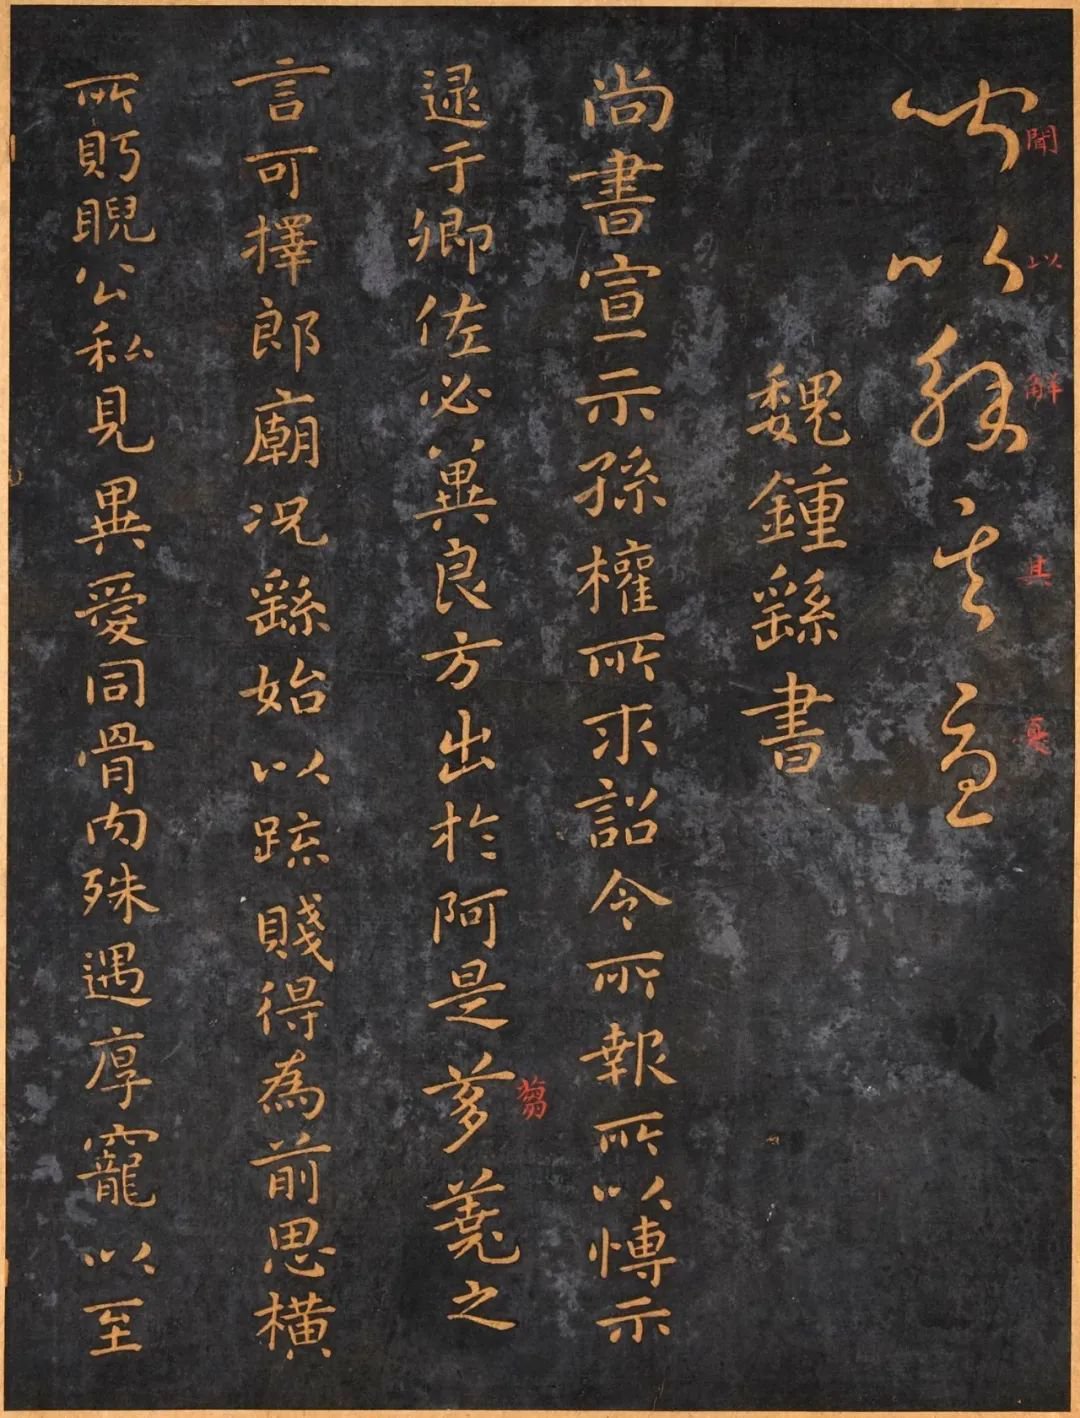 聞以解其憂
聞以解其憂
魏鍾繇書
尚書宣示孫權所求詔令所報所以博示
逮于卿佐必冀良方出於阿是芻蕘之
芻
言可擇郎廟况繇始以疏賤得為前恩橫
所眄睨公私見異愛同骨肉殊遇厚寵以至